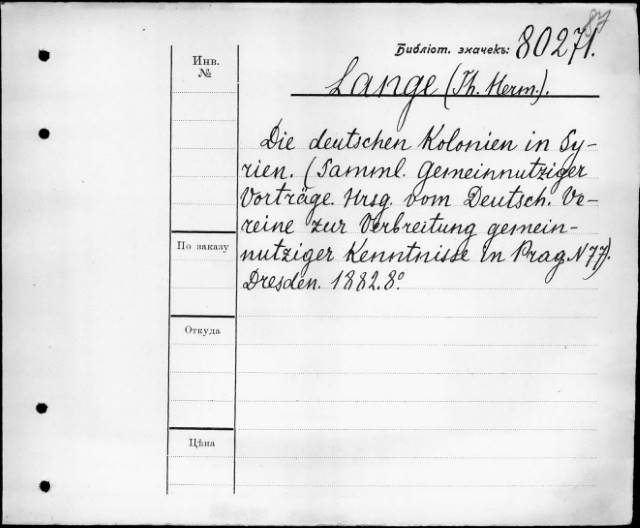 87
Библіот. значекъ: 80271.
Инв.
№
Lange (Th. Herm.).
Die deutschen Kolonien in Sy-
rien. (Samml. Gemeinnutziger
Vorträge. Hrsg. vom Deutsch. Ve-
reine zur Verbreitung gemein-
nutziger Kenntnisse in Prag. N 77).
Dresden. 1882. 8º.
По заказу
Откуда
Цѣна